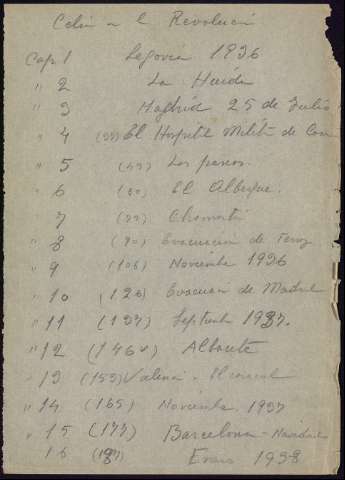 Celia en la Revolución
Cap. 1 Segovia 1936
" 2 La Huida
" 3 Madrid 25 de Julio
" 4 El Hospital Milit de Car
" 5 Los paseos.
" 6 El Albergue.
" 7 Chamartin
" 8 Evacuacion de
" 9 (106) Noviembre 1936
" 10 (126) Evacuación de Madrid
" 11 (137) Septiemb 1937.
" 12 Albacete
" 13 (153) Valencia -
" 14 (165) Noviembre 1937
" 15 (177) Barcelona - Navidad
" 16 Enero 1938